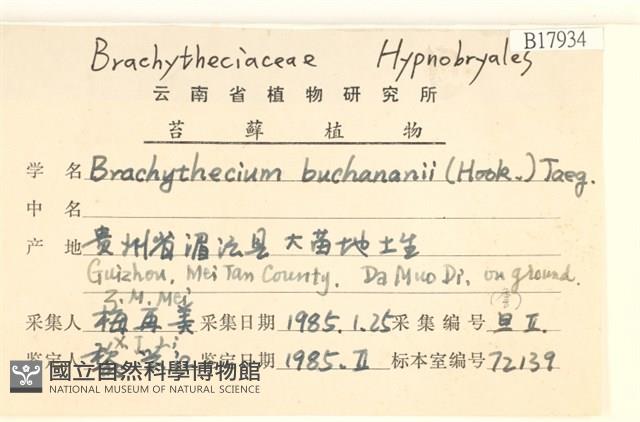 B17934
Brachytheciaceae Hypnobryales
云南省植物研究所
苔藓植物
学名 Brachythecium buchananii (Hook.) Jaeg.
中名
产地 贵州省湄潭县 大苗地土生
Guizhou, Mei Tan County. Da Muo Di, on ground.
Z. M. Mei
采集人 梅再美 采集日期 1985.1.25 采集编号 旦 II.
X. I. Li
鉴定人 鉴定日期 1985.II 标本室编号 72139
國立自然科學博物館
NATIONAL MUSEUM OF NATURAL SCIENCE